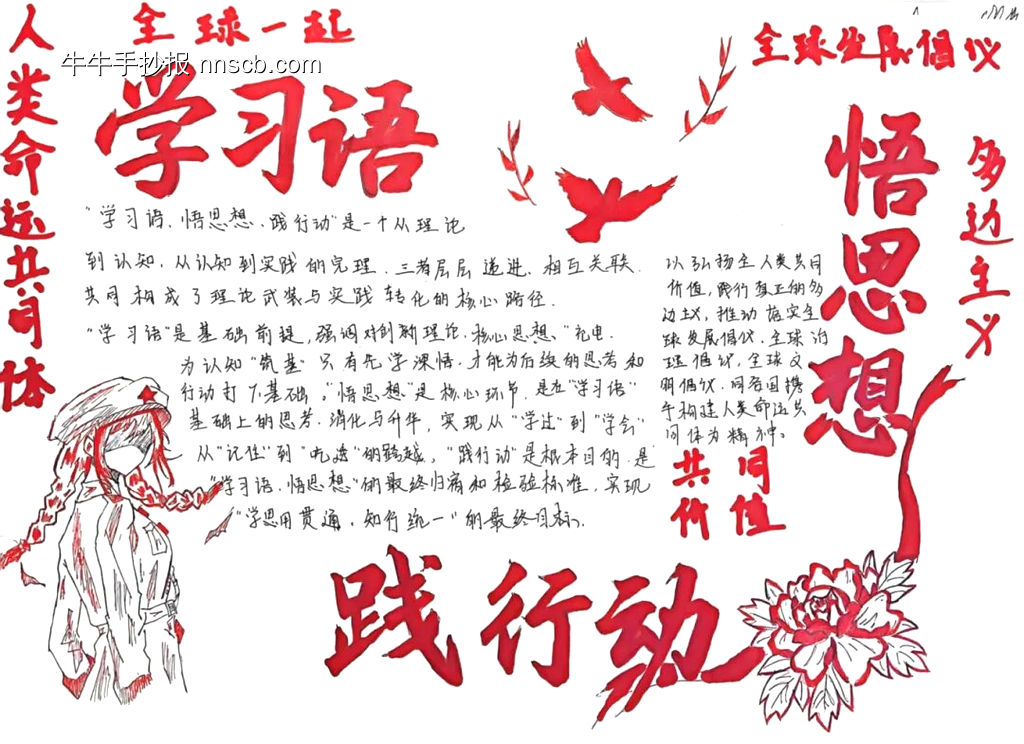 人类命运共同体
全球一起
牛牛手抄报 nnscb.com
学习语
"学习语、悟思想、践行动"是一个从理论
到认知、从认知到实践的完理,三者层层递进、相互关联.
共同构成了理论武装与实践转化的核心路径.
"学习语"是基础前提,强调对创新理论、核心思想、"充电.
为认知"筑基"只有先学深悟.才能为后续的思考和
行动打下基础。"悟思想"是核心环节.是在"学习语"
基础上的思考.消化与升华,实现从"学过"到"学会"
从"记住"到"吃透"的跨越。"践行动"是根本目的.是
"学习语.悟思想"的最终归宿和检验标准,实现
"学思用贯通、知行统一"的最终目标。
全球发展倡议
悟思想
多边主义
以弘扬全人类共同
价值,践行真正的多
边主义,推动落实全
球发展倡议.全球治
理倡议,全球文
明倡议.同各国携
手构建人类命运共
同体为精神。
共同
价值
践行动